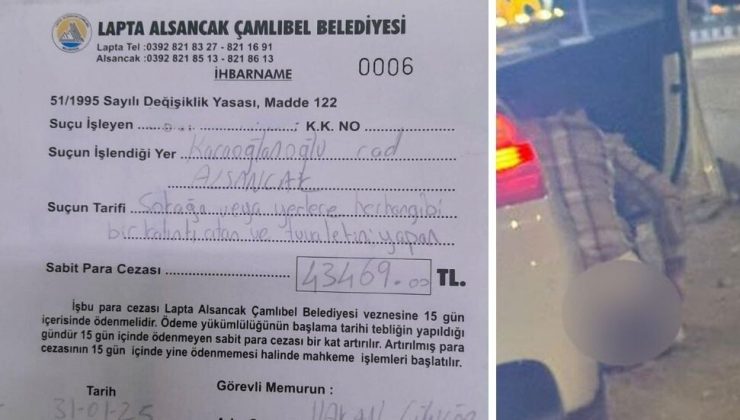 LAPTA ALSANCAK ÇAMLIBEL BELEDİYESİ
Lapta Tel :0392 821 83 27 - 821 16 91
Alsancak :0392 821 85 13 - 821 86 13
İHBARNAME
0006
51/1995 Sayılı Değişiklik Yasası, Madde 122
Suçu İşleyen K.K. NO
Suçun İşlendiği Yer Karaoğlanoğlu cad
ALSANCAK
Suçun Tarifi Sokağa veya yerlere herhangibi
bir kalıntı atan ve tuvaletini yapan
Sabit Para Cezası 43469.00 TL.
İşbu para cezası Lapta Alsancak Çamlıbel Belediyesi veznesine 15 gün
içerisinde ödenmelidir. Ödeme yükümlülüğünün başlama tarihi tebliğin yapıldığı
gündür 15 gün içinde ödenmeyen sabit para cezası bir kat artırılır. Artırılmış para
cezasının 15 gün içinde yine ödenmemesi halinde mahkeme işlemleri başlatılır.
Tarih Görevli Memurun :
31-01-25